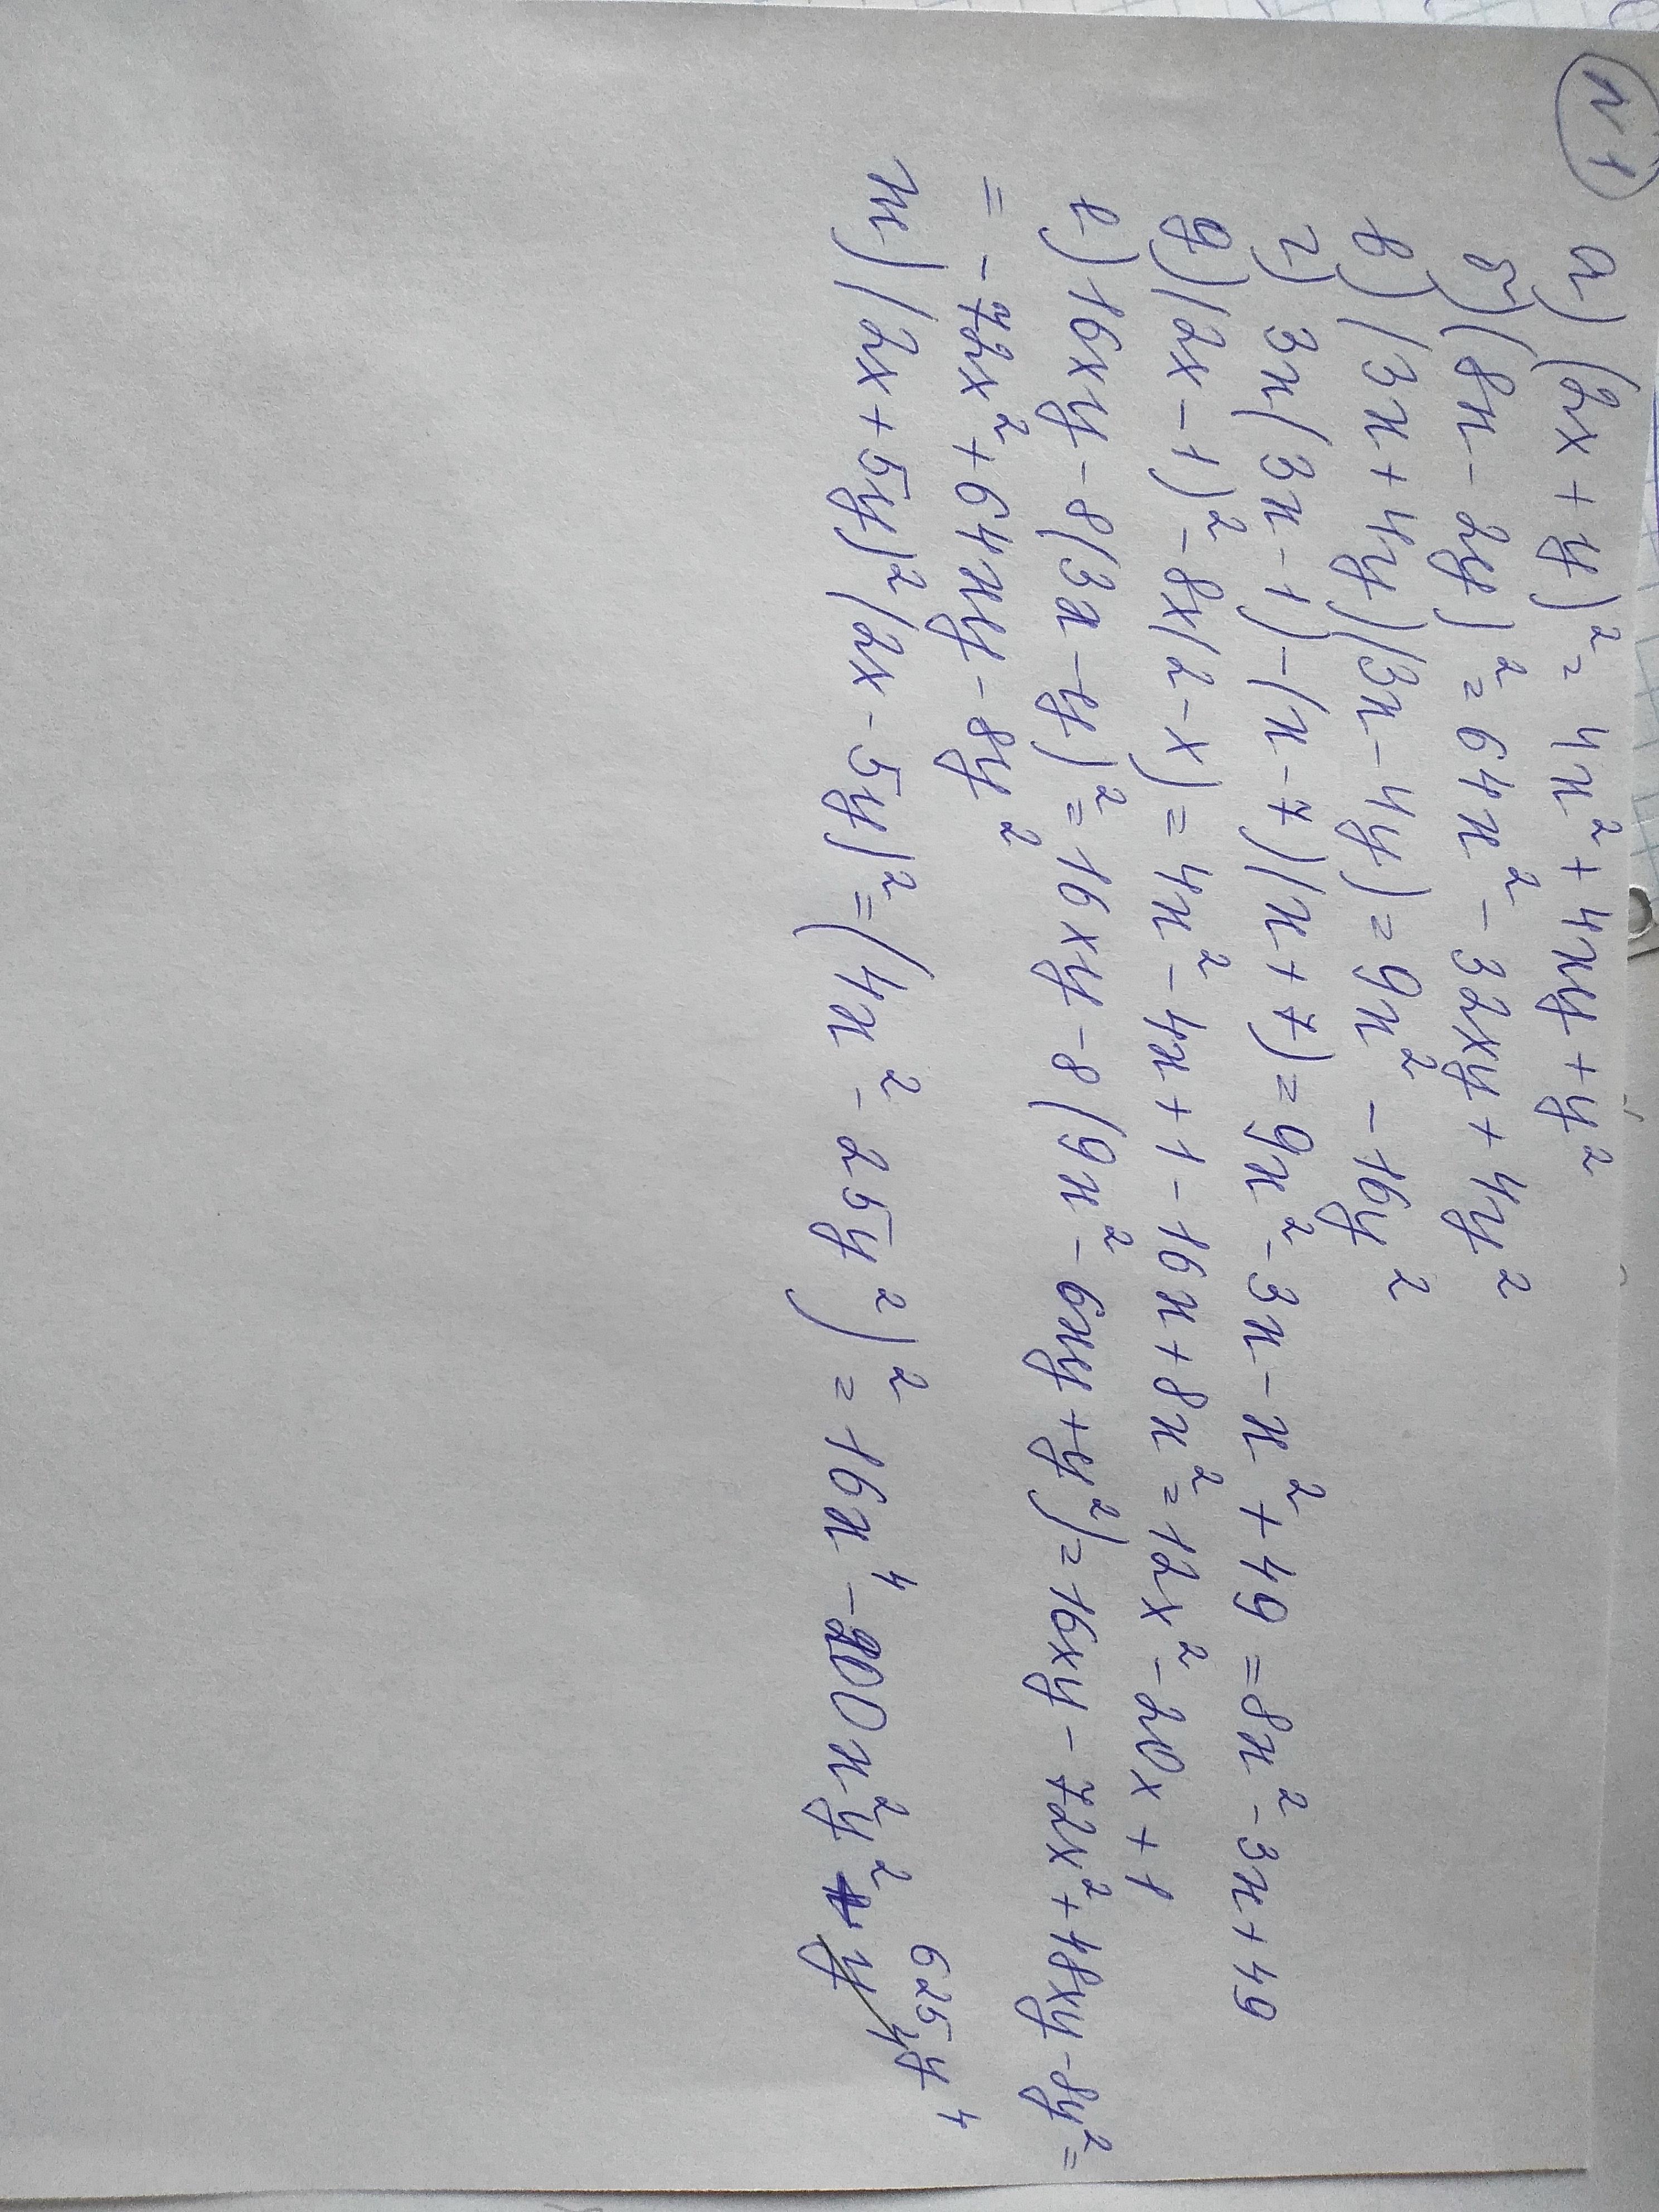 N 1
а) (2x + y)² = 4x² + 4xy + y²
б) (8x - 2y)² = 64x² - 32xy + 4y²
в) (3x + 4y)(3x - 4y) = 9x² - 16y²
г) 3x(3x - 1) - (x - 7)(x + 7) = 9x² - 3x - x² + 49 = 8x² - 3x + 49
д) (2x - 1)² - 8x(2 - x) = 4x² - 4x + 1 - 16x + 8x² = 12x² - 20x + 1
е) 16xy - 8(3x - y)² = 16xy - 8(9x² - 6xy + y²) = 16xy - 72x² + 48xy - 8y² =
= -72x² + 64xy - 8y²
ж) (2x + 5y)² (2x - 5y)² = (4x² - 25y²)² = 16x⁴ - 200x²y² + 625y⁴